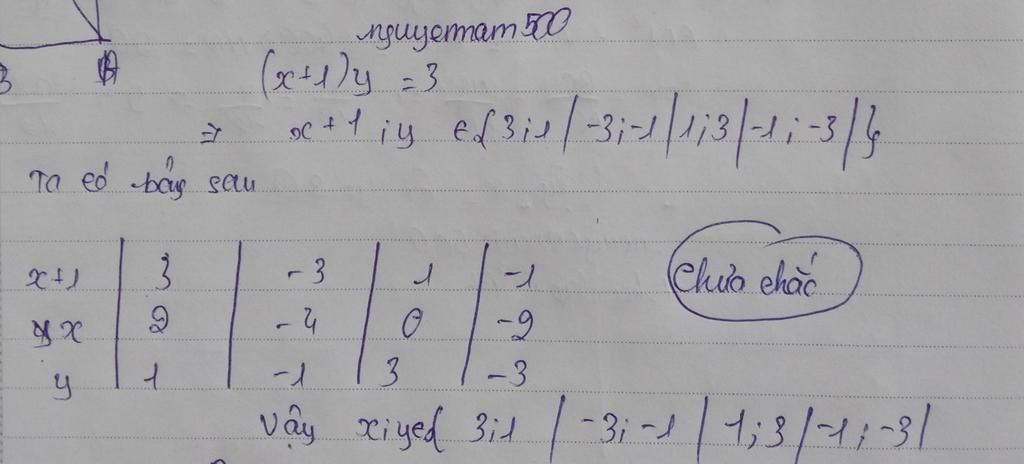 nguyetnam500
B A
(x+1)y = 3
=> x+1 ; y ∈{ 3;1 | -3;-1 | 1;3 | -1;-3 | }
Ta có bảng sau
x+1 | 3 | -3 | 1 | -1
x | 2 | -4 | 0 | -2
Chưa chắc
y | 1 | -1 | 3 | -3
Vậy x;y∈{ 3;1 | -3;-1 | 1;3 | -1;-3 |